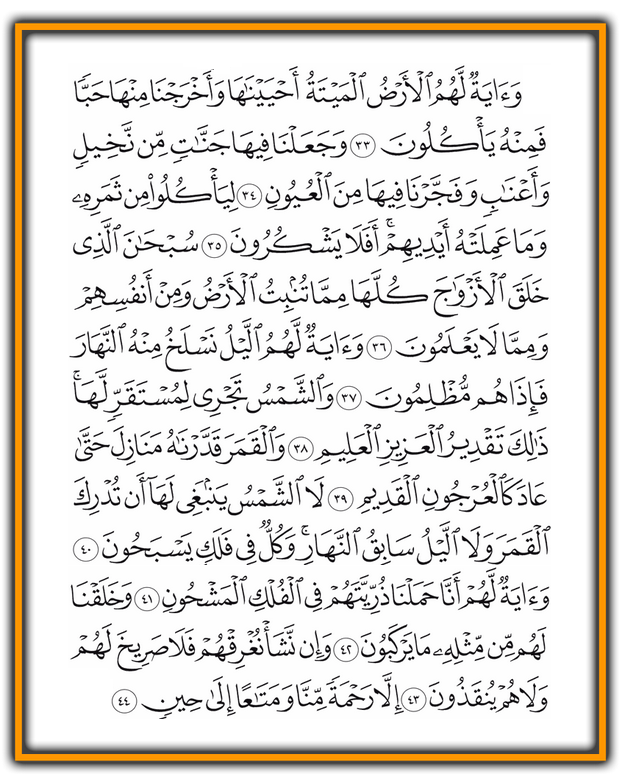 وَءَايَةٌ لَّهُمُ ٱلْأَرْضُ ٱلْمَيْتَةُ أَحْيَيْنَٰهَا وَأَخْرَجْنَا مِنْهَا حَبًّا
فَمِنْهُ يَأْكُلُونَ ٣٣ وَجَعَلْنَا فِيهَا جَنَّٰتٍ مِّن نَّخِيلٍ
وَأَعْنَٰبٍ وَفَجَّرْنَا فِيهَا مِنَ ٱلْعُيُونِ ٣٤ لِيَأْكُلُوا۟ مِن ثَمَرِهِۦ
وَمَا عَمِلَتْهُ أَيْدِيهِمْ ۚ أَفَلَا يَشْكُرُونَ ٣٥ سُبْحَٰنَ ٱلَّذِى
خَلَقَ ٱلْأَزْوَٰجَ كُلَّهَا مِمَّا تُنۢبِتُ ٱلْأَرْضُ وَمِنْ أَنفُسِهِمْ
وَمِمَّا لَا يَعْلَمُونَ ٣٦ وَءَايَةٌ لَّهُمُ ٱلَّيْلُ نَسْلَخُ مِنْهُ ٱلنَّهَارَ
فَإِذَا هُم مُّظْلِمُونَ ٣٧ وَٱلشَّمْسُ تَجْرِى لِمُسْتَقَرٍّ لَّهَا ۚ
ذَٰلِكَ تَقْدِيرُ ٱلْعَزِيزِ ٱلْعَلِيمِ ٣٨ وَٱلْقَمَرَ قَدَّرْنَٰهُ مَنَازِلَ حَتَّىٰ
عَادَ كَٱلْعُرْجُونِ ٱلْقَدِيمِ ٣٩ لَا ٱلشَّمْسُ يَنۢبَغِى لَهَآ أَن تُدْرِكَ
ٱلْقَمَرَ وَلَا ٱلَّيْلُ سَابِقُ ٱلنَّهَارِ ۚ وَكُلٌّ فِى فَلَكٍ يَسْبَحُونَ ٤٠
وَءَايَةٌ لَّهُمْ أَنَّا حَمَلْنَا ذُرِّيَّتَهُمْ فِى ٱلْفُلْكِ ٱلْمَشْحُونِ ٤١ وَخَلَقْنَا
لَهُم مِّن مِّثْلِهِۦ مَا يَرْكَبُونَ ٤٢ وَإِن نَّشَأْ نُغْرِقْهُمْ فَلَا صَرِيخَ لَهُمْ
وَلَا هُمْ يُنقَذُونَ ٤٣ إِلَّا رَحْمَةً مِّنَّا وَمَتَٰعًا إِلَىٰ حِينٍ ٤٤